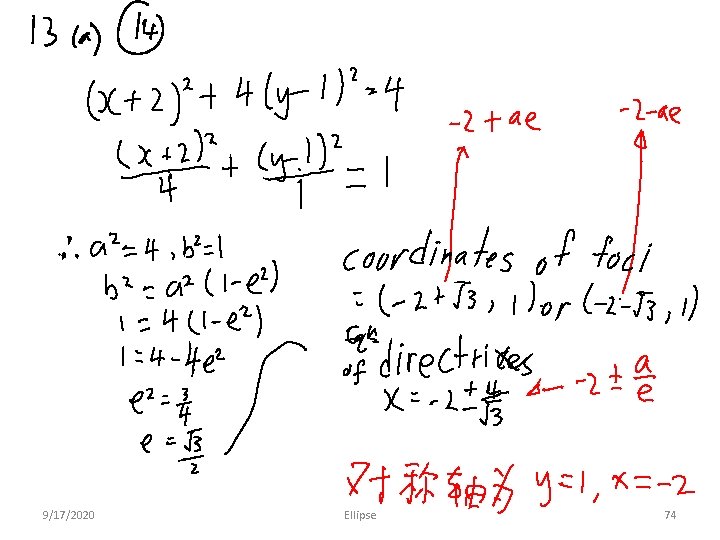 13 (a) (14)
(x+2)² + 4(y-1)² = 4
(x+2)²/4 + (y-1)²/1 = 1
∴ a² = 4, b² = 1
b² = a²(1-e²)
1 = 4(1-e²)
1 = 4-4e²
e² = 3/4
e = √3/2
-2+ae
-2-ae
coordinates of foci
= (-2+√3, 1) or (-2-√3, 1)
Eqn
of directrixes
x = -2 ± 4/√3
-2 ± a/e
对称轴为 y=1, x=-2
9/17/2020
Ellipse
74